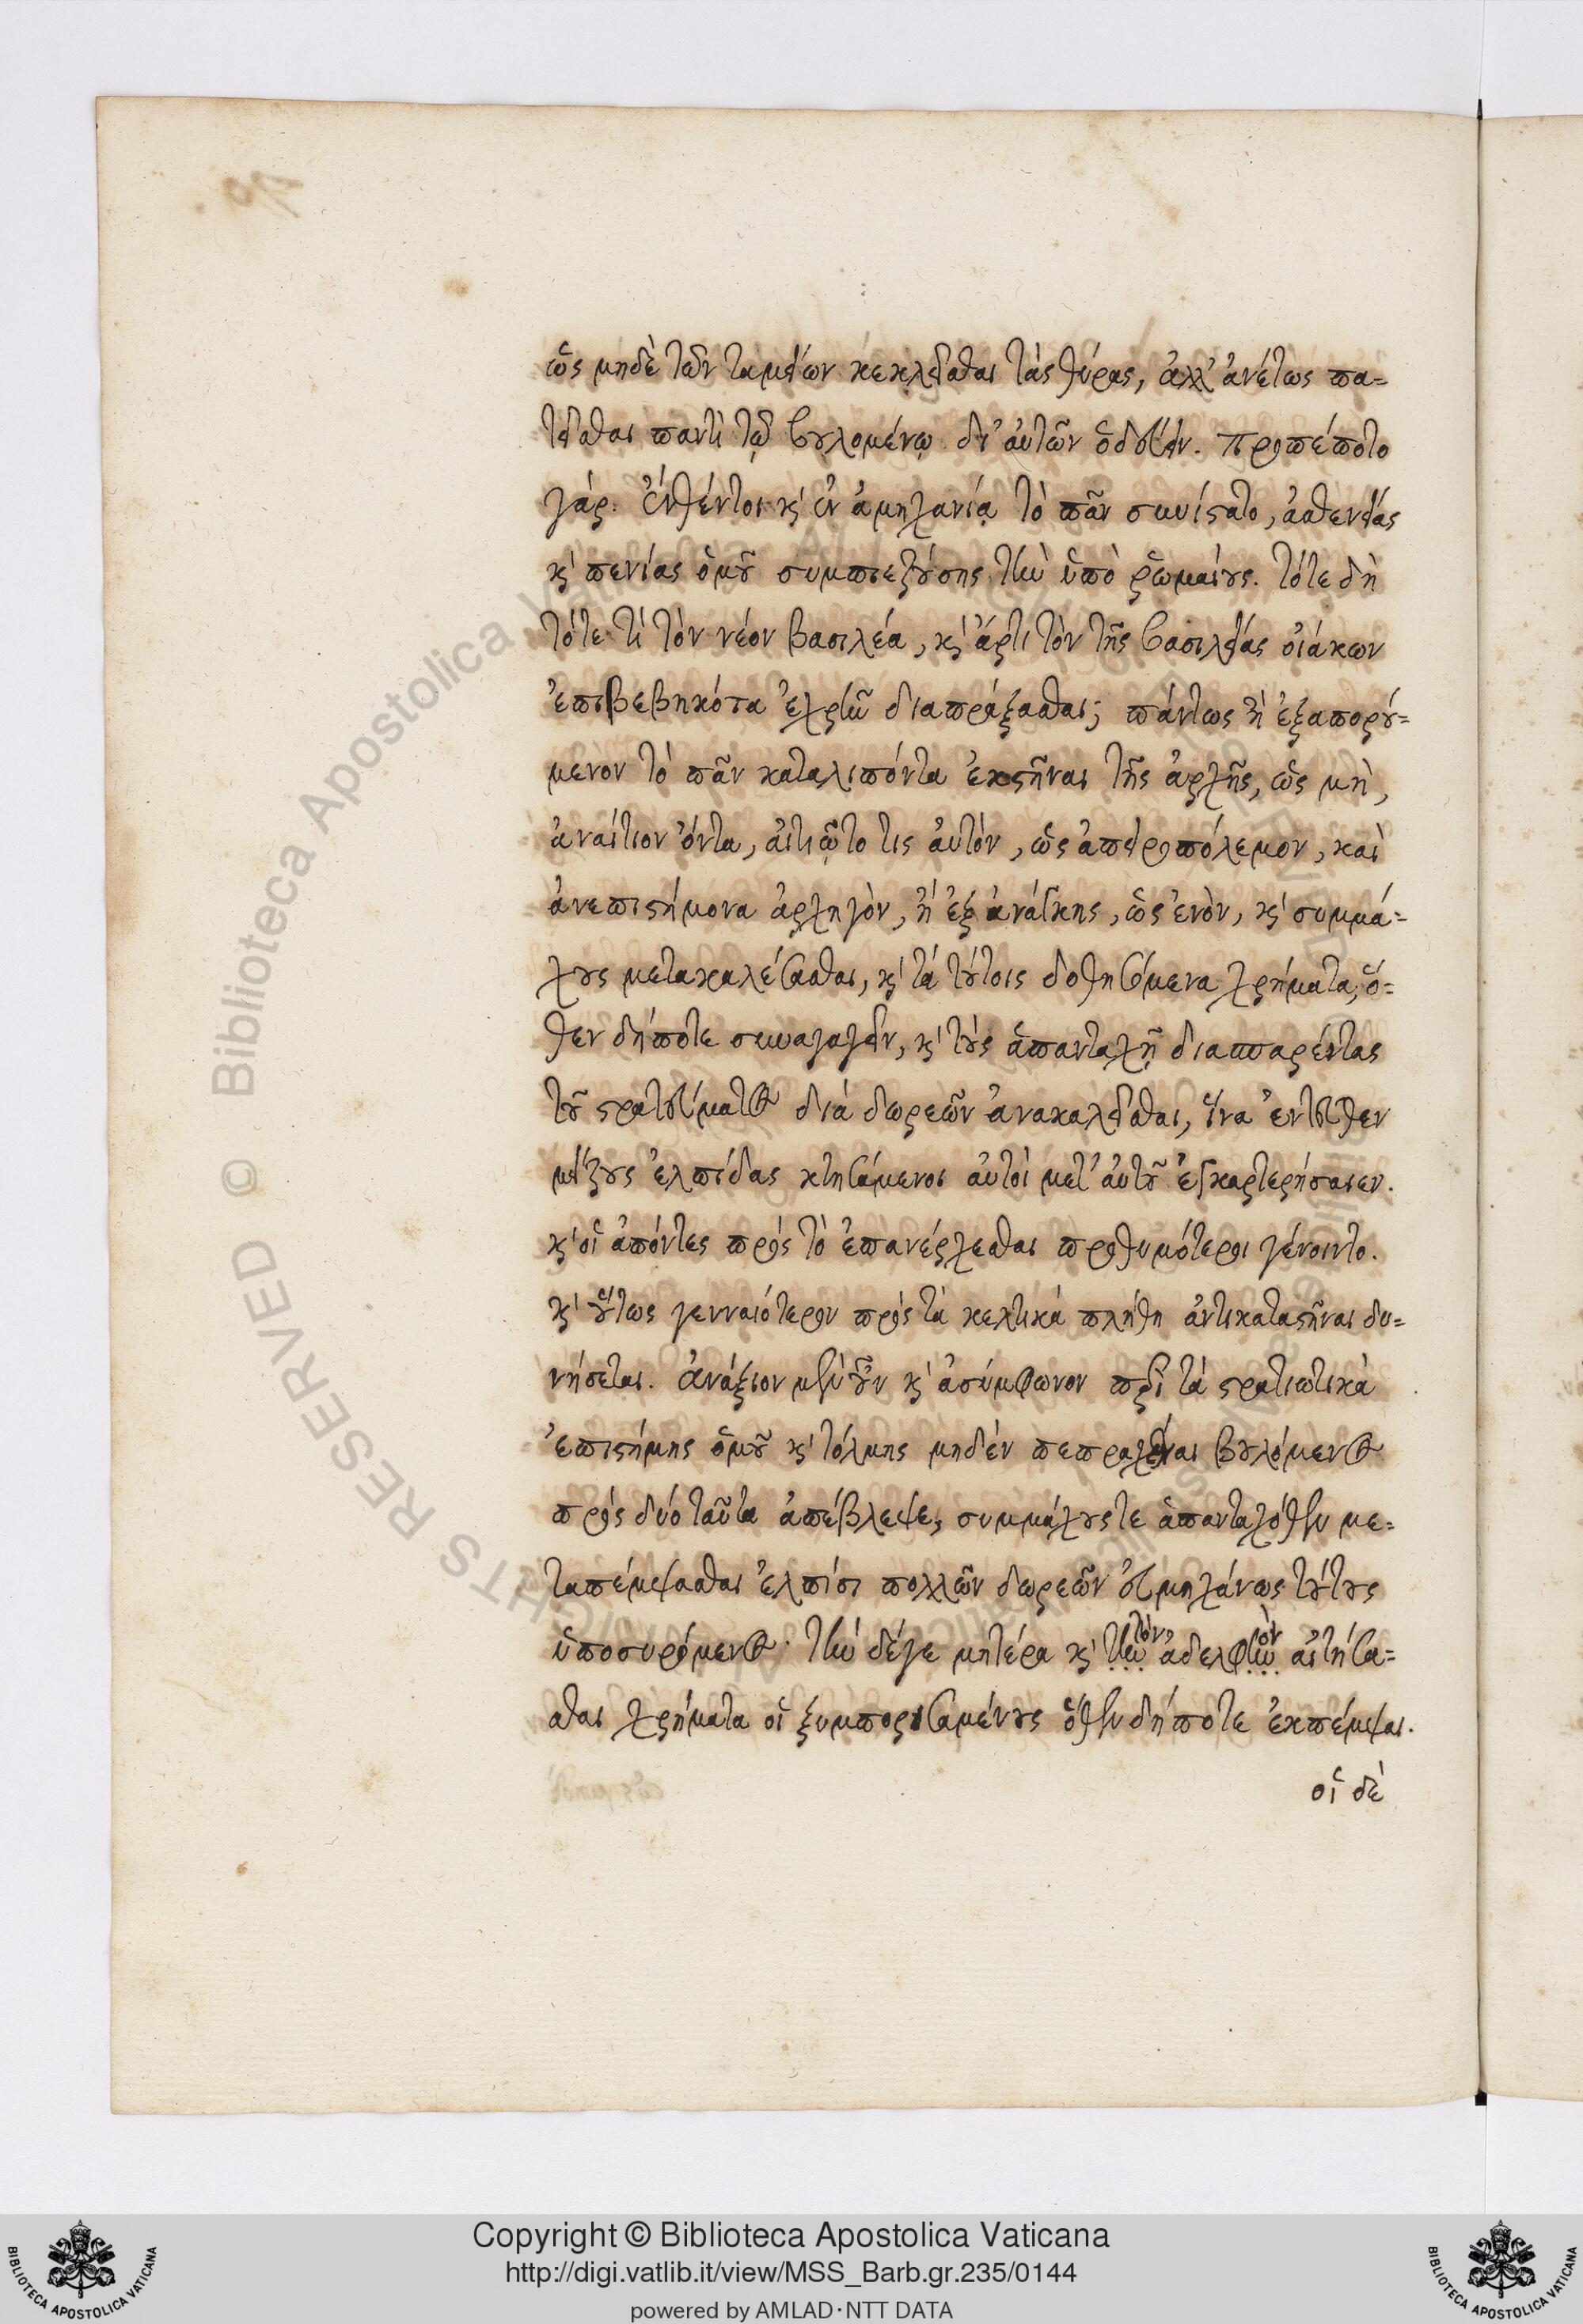 ὡς μηδὲ τῶν ταμείων κεκλεῖσθαι τὰς θύρας, ἀλλ' ἀνέτως πα=
τεῖσθαι παντὶ τῷ βουλομένῳ δι' αὐτῶν ὁδεύειν. προπέποτο
γάρ. ἐντεῦθεν τοι καὶ ἐν ἀμηχανίᾳ τὸ πᾶν συνίστατο, ἀσθενείας
καὶ πενίας ὁμοῦ συμπιεζούσης τὴν ὑπὸ ῥωμαίους. τότε δὴ
τότε τί τὸν νέον βασιλέα, καὶ ἄρτι τὸν τῆς βασιλείας οἰάκων
ἐπιβεβηκότα ἐχρῆν διαπράξασθαι; πάντως ἢ ἐξαπορού=
μενον τὸ πᾶν καταλιπόντα ἐκστῆναι τῆς ἀρχῆς, ὡς μὴ,
ἀναίτιον ὄντα, αἰτιῷτο τις αὐτόν, ὡς ἀπειροπόλεμον, καὶ
ἀνεπιστήμονα ἀρχηγὸν, ἢ ἐξ ἀνάγκης, ὡς ἐνὸν, καὶ συμμά=
χους μετακαλέσασθαι, καὶ τὰ τούτοις δοθησόμενα χρήματα, ὅ=
θεν δήποτε συναγαγεῖν, καὶ τοὺς ἁπανταχῇ διασπαρέντας
τοῦ στρατεύματος διὰ δωρεῶν ἀνακαλεῖσθαι, ἵνα ἐντεῦθεν
μείζους ἐλπίδας κτησάμενοι αὐτοὶ μετ' αὐτοῦ ἐγκαρτερήσαιεν.
καὶ οἱ ἀπόντες πρὸς τὸ ἐπανέρχεσθαι προθυμότεροι γένοιντο.
καὶ οὕτως γενναιότερον πρὸς τὰ κελτικὰ πλήθη ἀντικαταστῆναι δυ=
νήσεται. ἀνάξιον μὲν οὖν καὶ ἀσύμφωνον περὶ τὰ στρατιωτικὰ
ἐπιστήμης ὁμοῦ καὶ τόλμης μηδὲν πεπραχέναι βουλόμενος
πρὸς δύο ταῦτα ἀπέβλεψε, συμμάχους τε ἁπανταχόθεν με=
ταπέμψασθαι ἐλπίσι πολλῶν δωρεῶν εὐμηχάνως τούτους
ὑποσυρόμενος. τὴν δέ γε μητέρα καὶ τὴν τὸν ἀδελφὴν ὸν αἰτήσα=
σθαι χρήματα οἱ ξυμπορισαμένους ὅθεν δήποτε ἐκπέμψαι.
οἱ δὲ
Biblioteca Apostolica Vaticana
Copyright © Biblioteca Apostolica Vaticana
http://digi.vatlib.it/view/MSS_Barb.gr.235/0144
powered by AMLAD·NTT DATA
BIBLIOTECA APOSTOLICA VATICANA
BIBLIOTECA APOSTOLICA VATICANA